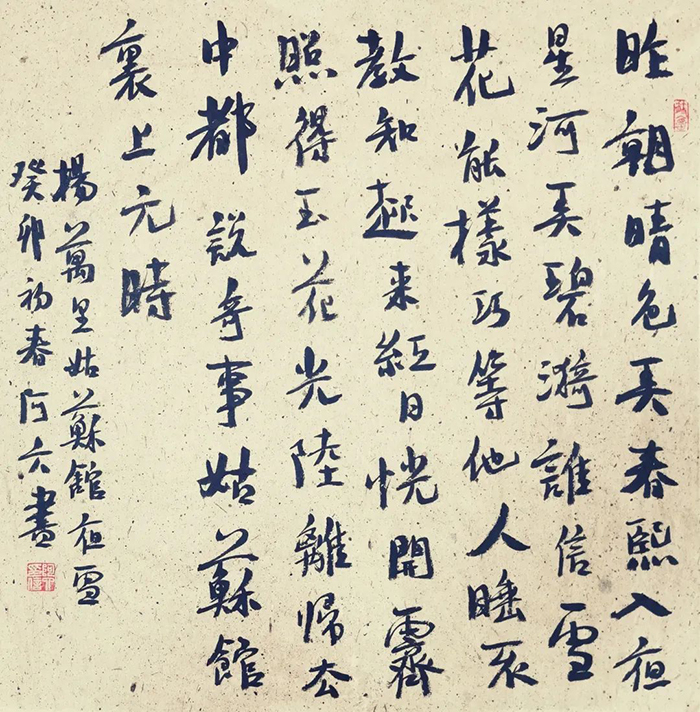 昨朝晴色弄春熙入夜
星河弄碧漪誰信雪
花能樣巧等他人睡不
教知起来紅日恍開霽
照得玉花光陸離歸去
中都說奇事姑蘇館
裏上元時
楊萬里姑蘇館夜雪
癸卯初春阿六書